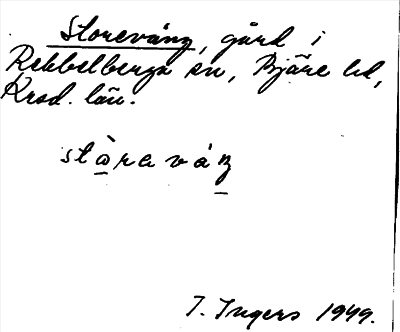 Storevång, gård i
Rebbelberga sn, Bjäre hd,
Krsd. län.
I. Ingers 1949.